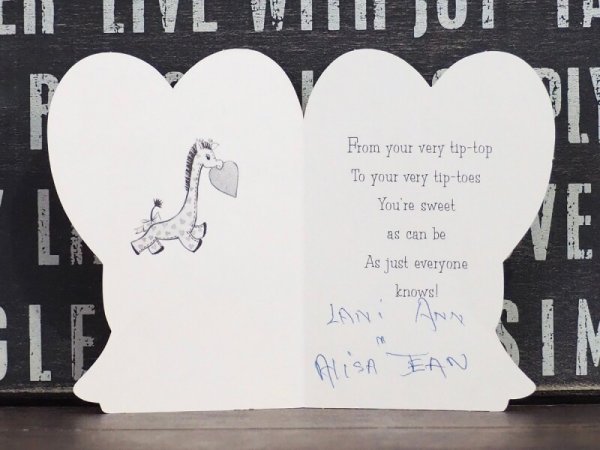 LIVE WITH JUST
From your very tip-top
To your very tip-toes
You're sweet
as can be
As just everyone
knows!
LANi ANN
n
AliSA JEAN